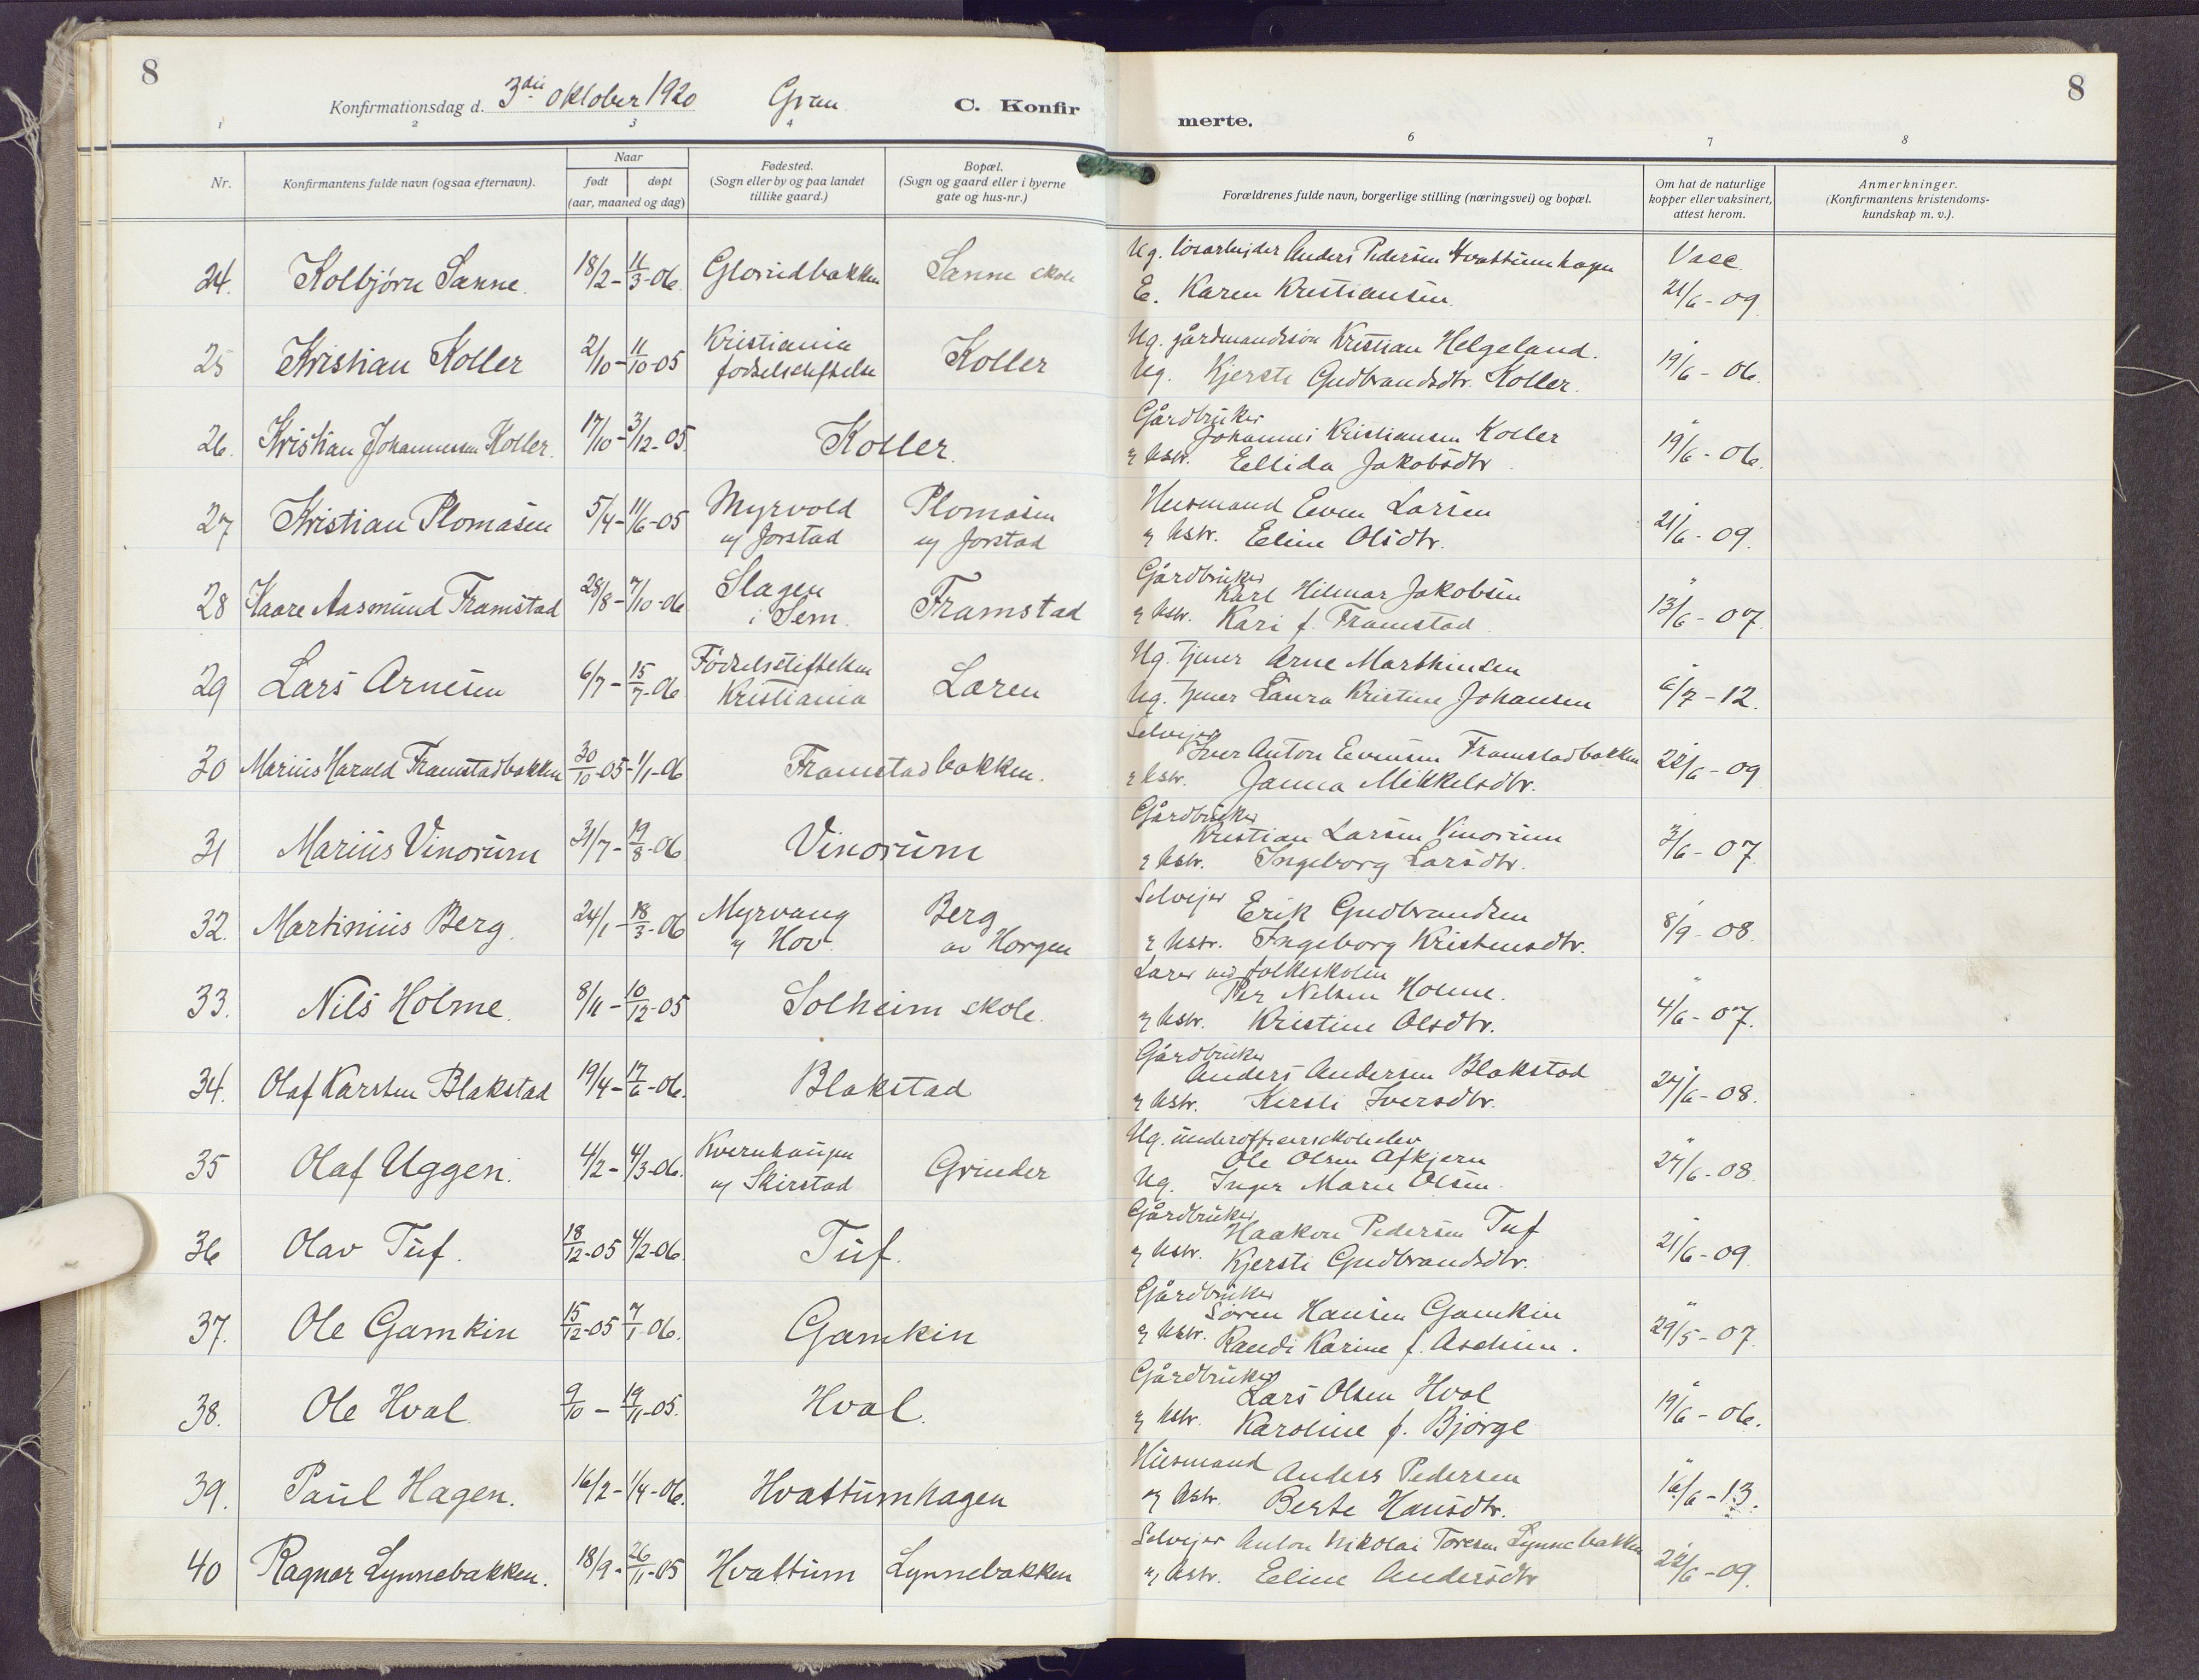 8
Konfirmationsdag d. 3die oktober 1920 Gran C. Konfir
merte.
8
1 2 3 4 6 7 8
Nr. Konfirmantens fulde navn (ogsaa efternavn). Naar født døpt (aar, maaned og dag) Fødested. (Sogn eller by og paa landet tillike gaard.) Bopæl. (Sogn og gaard eller i byerne gate og hus-nr.) Forældrenes fulde navn, borgerlige stilling (næringsvei) og bopæl. Om hat de naturlige kopper eller vaksinert, attest herom. Anmerkninger. (Konfirmantens kristendoms- kundskap m. v.).
24. Kolbjørn Sanne. 18/2 - 11/3-06. Glorudbakken Sanne skole Ug. løsarbejder Anders Pedersen Hvattumhagen Vacc.
E. Karen Kristiansen. 21/6 - 09
25 Kristian Koller 2/10 - 11/10-05 Kristiania fødselsstiftelse Koller Ug. gårdmandssøn Kristian Helgeland.
Ug. Kjersti Gudbrandsdtr. Koller. " 19/6 - 06.
26. Kristian Johannessen Koller. 17/10 - 3/12-05. Koller. Gårdbruker Johannes Kristiansen Koller
& hstr. Ellida Jakobsdtr. " 19/6 - 06.
27 Kristian Plomasen 5/4 - 11/6-05 Myrvold u/ Jorstad Plomasen u/ Jorstad Husmand Even Larsen
& hstr. Eline Olsdtr. " 21/6 - 09.
28 Kaare Aasmund Framstad 28/8 - 7/10-06 Slagen i Sem. Framstad Gårdbruker Karl Hilmar Jakobsen
& hstr. Kari f. Framstad " 13/6 - 07.
29 Lars Arnesen 6/7 - 15/7-06 Fødselsstiftelsen Kristiania Laren Ug. tjener Arne Marthinsen
Ug. tjener Laura Kristine Johansen " 6/7 - 12.
30 Marius Harald Framstadbakken 30/10-05 - 1/1-06 Framstadbakken. Selvejer Iver Anton Evensen Framstadbakken
& hstr. Janna Mikkelsdtr. " 22/6 - 09
31 Marius Vinorum 31/7 - 19/8-06 Vinorum Gårdbruker Kristian Larsen Vinorum
& hstr. Ingeborg Larsdtr. " 3/6 - 07
32. Martinius Berg. 24/1 - 18/3-06 Myrvang u/ Hov. Berg av Horgen Selvejer Erik Gudbrandsen
& hstr. Ingeborg Kristensdtr. " 8/9 - 08.
33. Nils Holme. 8/11 - 10/12-05 Solheim skole. Lærer ved folkeskolen Per Nilsen Holme.
& hstr. Kristine Olsdtr. " 4/6 - 07.
34. Olaf Karsten Blakstad 19/4 - 17/6-06. Blakstad Gårdbruker Anders Andersen Blakstad
& hstr. Kersti Iversdtr. " 24/6 - 08.
35 Olaf Uggen. 4/2 - 4/3-06. Kvernhaugen u/ Skirstad Grinder Ug. underofficersskoleelev Ole Olsen Afkjern
Ug. Inger Marie Olsen. " 24/6 - 08
36 Olav Tuf. 18/12-05 4/2-06. Tuf. Gårdbruker Haakon Pedersen Tuf
& hstr. Kjersti Gudbrandsdtr. " 21/6 - 09
37. Ole Gamkin 15/12-05 7/1-06. Gamkin Gårdbruker Søren Hansen Gamkin
& hstr. Randi Karine f. Aschim. " 29/5 - 07
38. Ole Hval 9/10 - 19/11-05. Hval. Gårdbruker Lars Olsen Hval
& hstr. Karoline f. Bjørge " 19/6 - 06.
39. Paul Hagen. 16/2 - 1/4-06. Hvattumhagen Husmand Anders Pedersen
& hstr. Berte Hansdtr. " 16/6 - 13.
40 Ragnar Lynnebakken. 18/9 - 26/11-05 Hvattum Lynnebakken Selvejer Anton Nikolai Toresen Lynnebakken
& hstr. Eline Andersdtr " 22/6 - 09.